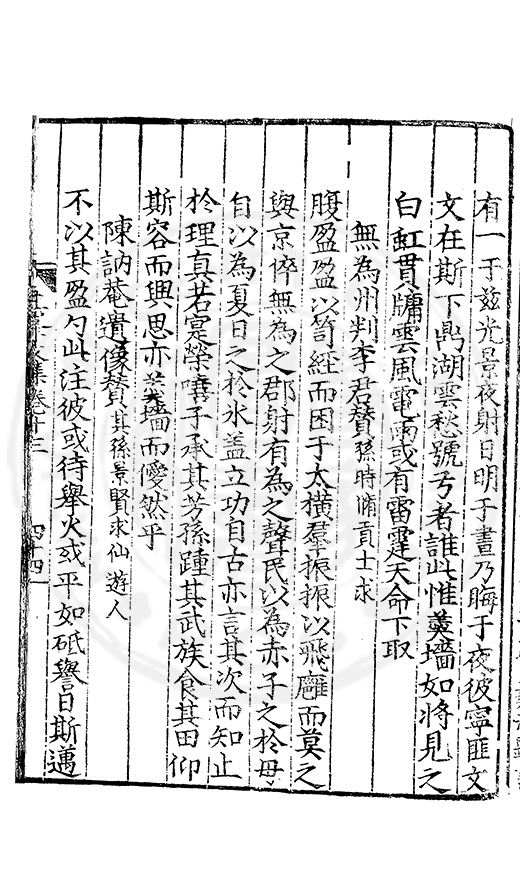 有一于兹光景夜射日明于晝乃晦于夜彼寧匪文
文在斯下鼎湖雲愁號弓者誰此惟羹墻如將見之
白虹貫牖雲風電雨或有雷霆天命下取
無為州判李君贊孫時脩貢士求
腹盈盈以笥經而困于太橫羣振振以飛廱而莫之
與京倅無為之郡射有為之聲民以為赤子之於母
自以為夏日之於氷盖立功自古亦言其次而知止
於理真若寔榮嘻子承其芳孫踵其武族食其田仰
斯容而興思亦羹墻而僾然乎
陳訥菴遺像贊其孫景賢求仙遊人
不以其盈勺此注彼或待舉火或平如砥譽日斯邁
文集卷廿三
四十四